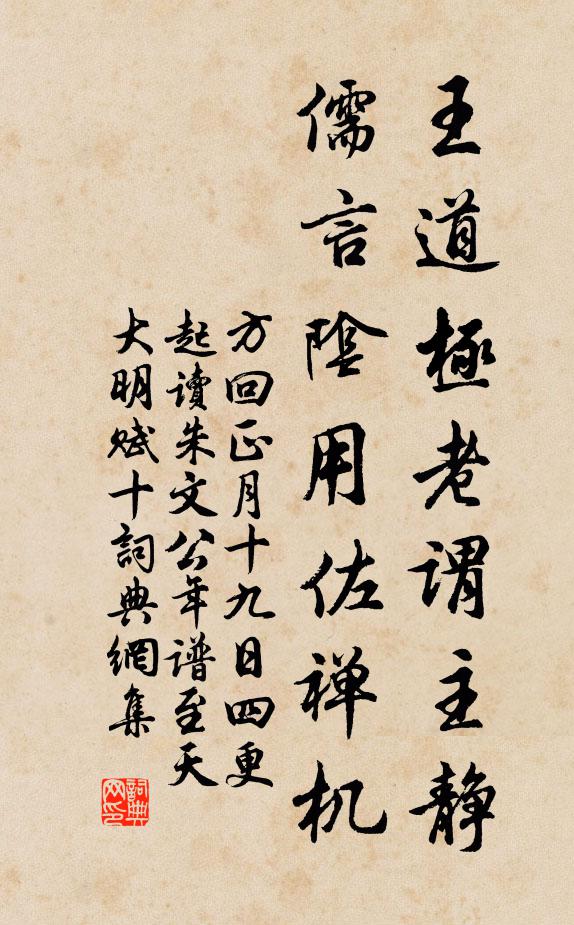 王道極老谓主静
儒言陰用佐禅机
方回正月十九日四更
起讀朱文公年谱至天
大明赋十詞典網集
詞典
网印